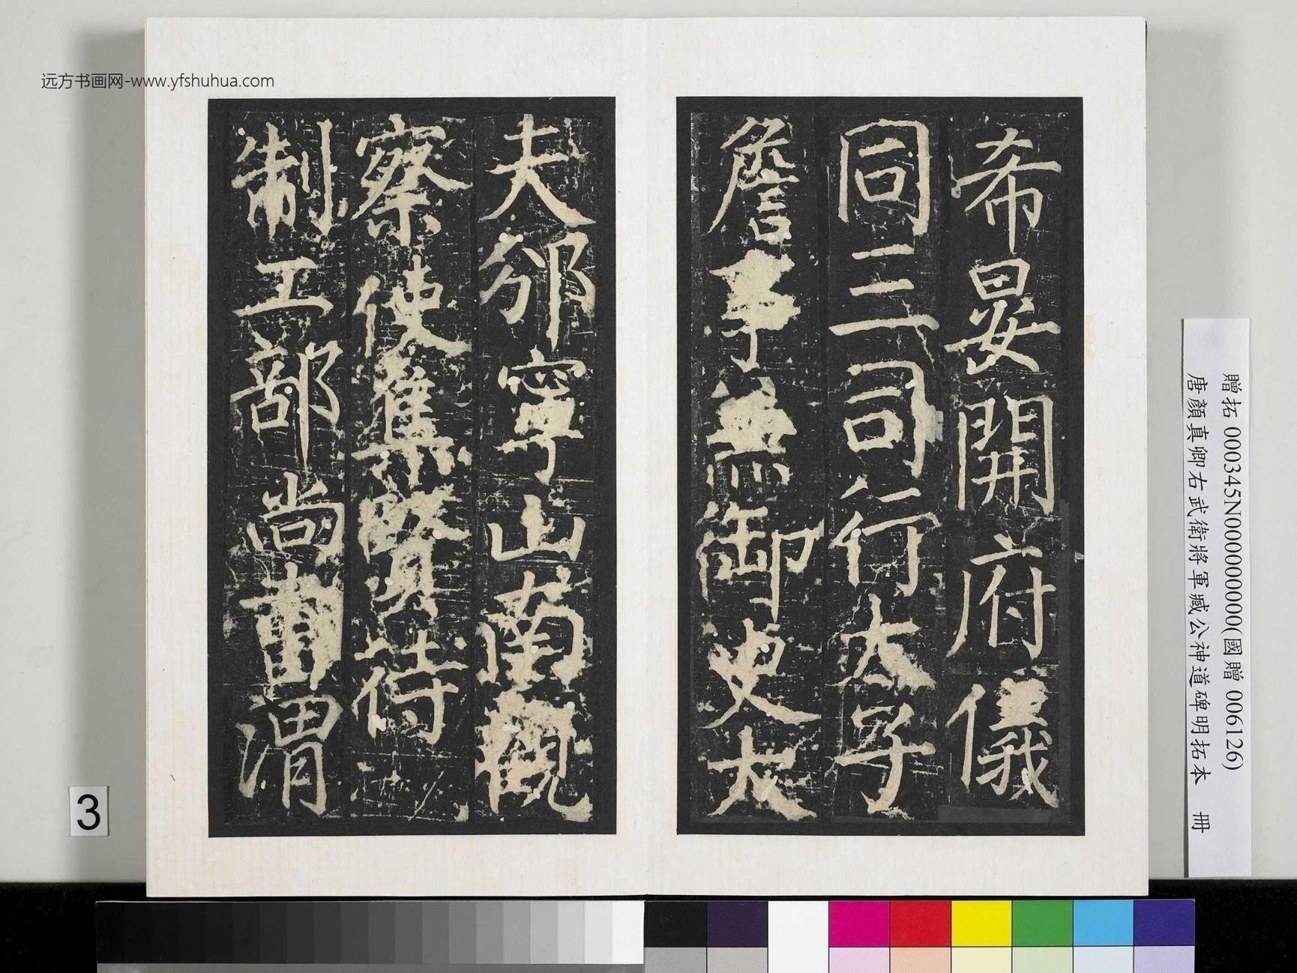 远方书画网-www.yfshuhua.com
希晏開府儀
同三司行太子
詹事兼御史大
夫邠寧山南觀
察使集賢待
制工部尚書渭
3
贈拓 000345N000000000(國贈 006126)
唐顏真卿右武衛將軍臧公神道碑明拓本 冊